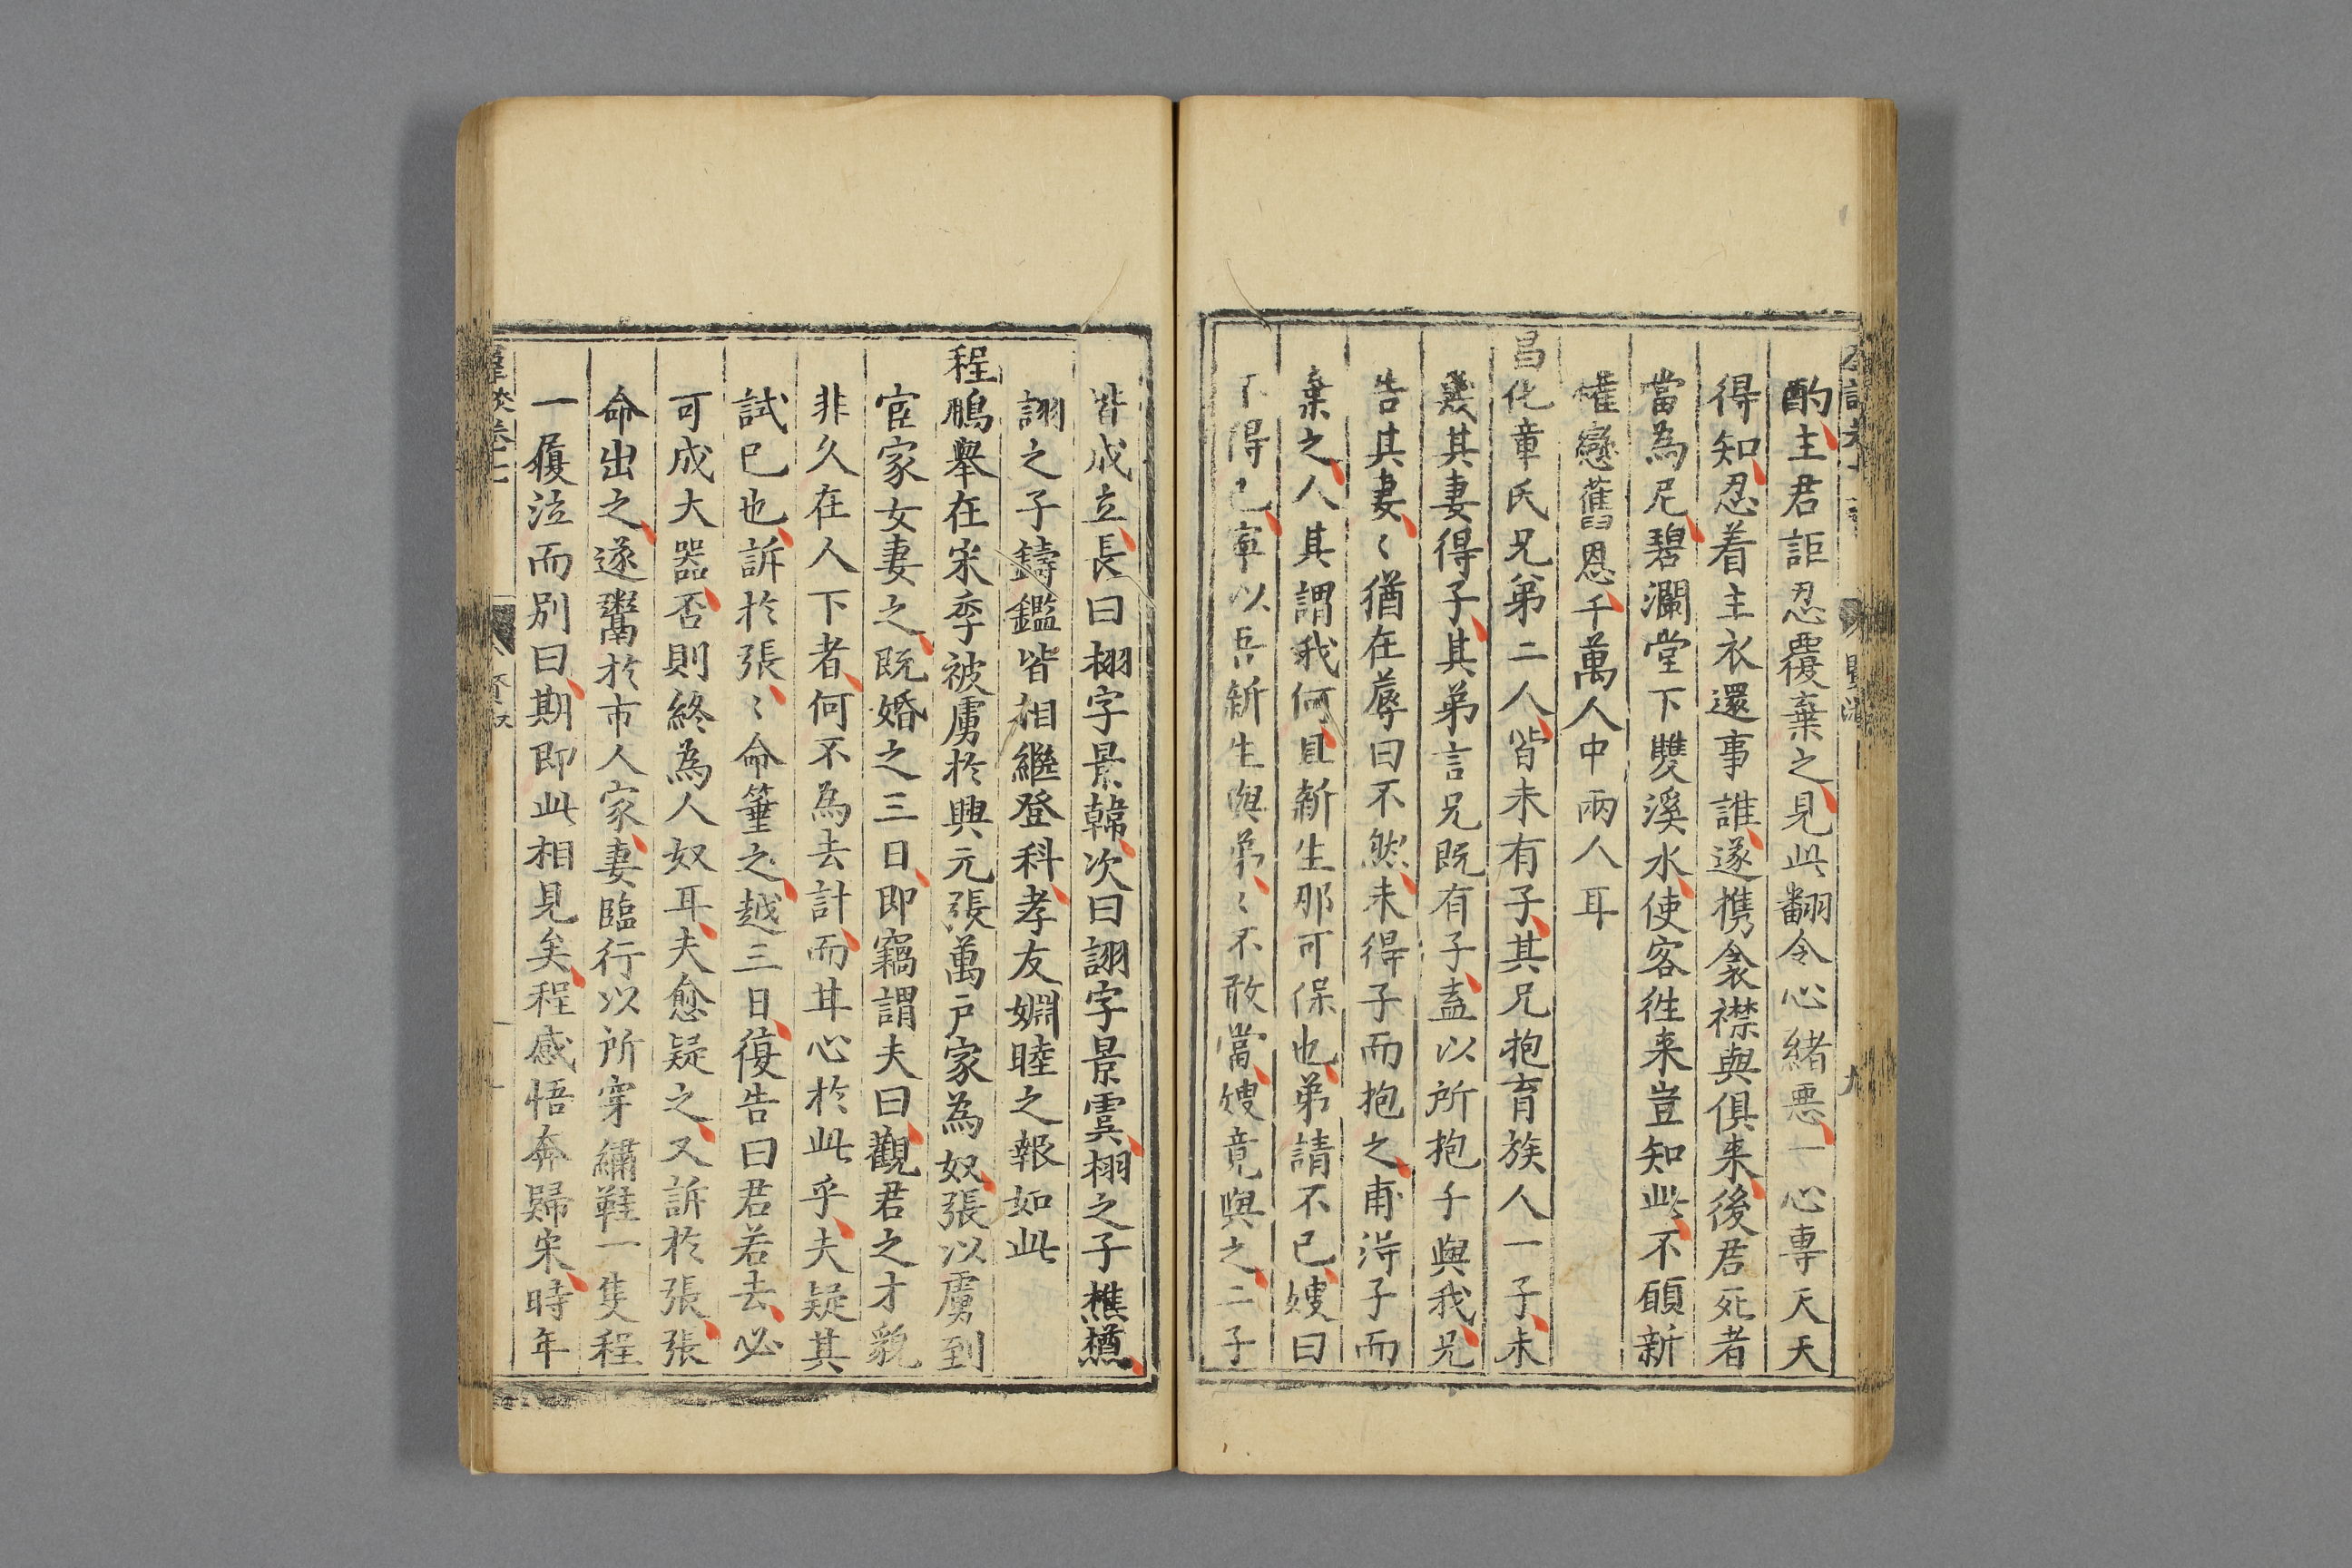 酌主君詎忍覆棄之見此翻令心緒悪一心専天天
得知忍着主衣還事誰遂携衾襟與俱来後君死者
當為尼碧瀾堂下雙溪水使客徃来豈知此不願新
懽戀舊恩千萬人中兩人耳
昌化章氏兄弟二人皆未有子其兄抱育族人一子未
幾其妻得子其弟言兄既有子盍以所抱子與我兄
告其妻〻猶在蓐曰不然未得子而抱之甫得子而
棄之人其謂我何且新生那可保也弟請不已嫂曰
不得已寧以吾新生與弟〻不敢當嫂竟與之二子
皆成立長曰栩字景韓次曰詡字景虞栩之子樵槱
詡之子鑄鑑皆相繼登科孝友婣睦之報如此
程鵬舉在宋季被虜於興元張萬戶家為奴張以虜到
宦家女妻之既婚之三日即竊謂夫曰觀君之才貌
非久在人下者何不為去計而甘心於此乎夫疑其
試已也訴於張〻命箠之越三日復告曰君若去必
可成大器否則終為人奴耳夫愈疑之又訴於張張
命出之遂鬻於市人家妻臨行以所穿繡鞋一隻程
一履泣而別曰期即此相見矣程感悟奔歸宋時年